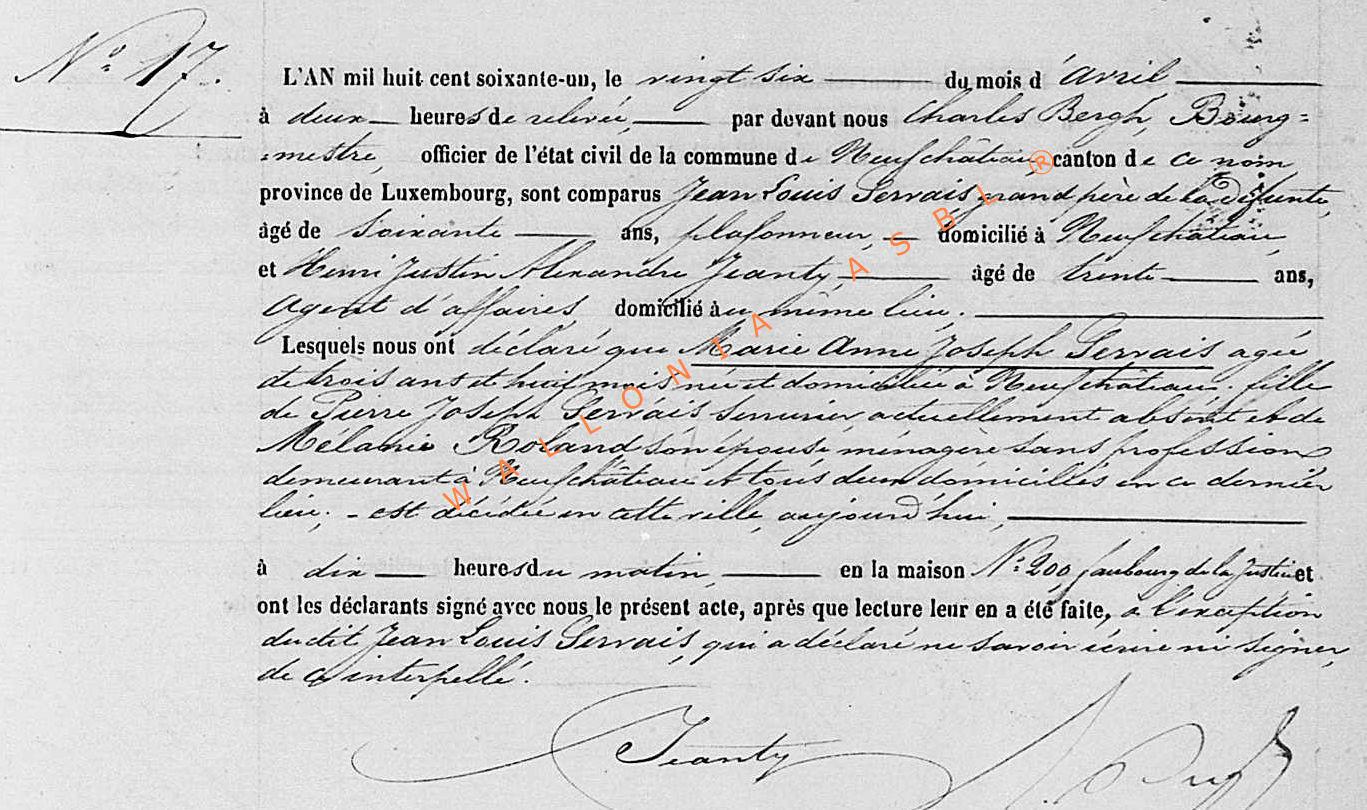 N° 17.
L'AN mil huit cent soixante-un, le vingt six du mois d'avril
à deux heures de relevée, par devant nous Charles Bergh, Bourg=
=mestre, officier de l'état civil de la commune de Neufchâteau, canton de ce nom
province de Luxembourg, sont comparus Jean Louis Servais grand père de la défunte,
âgé de soixante ans, plafonneur, domicilié à Neufchâteau,
et Henri Justin Alexandre Jeanty, âgé de trente ans,
agent d'affaires, domicilié au même lieu.
Lesquels nous ont déclaré que Marie Anne Joseph Servais agée
de trois ans et huit mois née et domiciliée à Neufchâteau, fille
de Pierre Joseph Servais serrurier, actuellement absent et de
Mélanie Roland son épouse ménagère sans profession
demeurant à Neufchâteau et tous deux domiciliés en ce dernier
lieu; - est décédée en cette ville, aujourd'hui,
à dix heures du matin, en la maison N° 200 faubourg de la Justice et
ont les déclarants signé avec nous le présent acte, après que lecture leur en a été faite, à l'exception
dudit Jean Louis Servais, qui a déclaré ne savoir écrire ni signer,
de ce interpellé.
Jeanty
WALLONIA ASBL ®